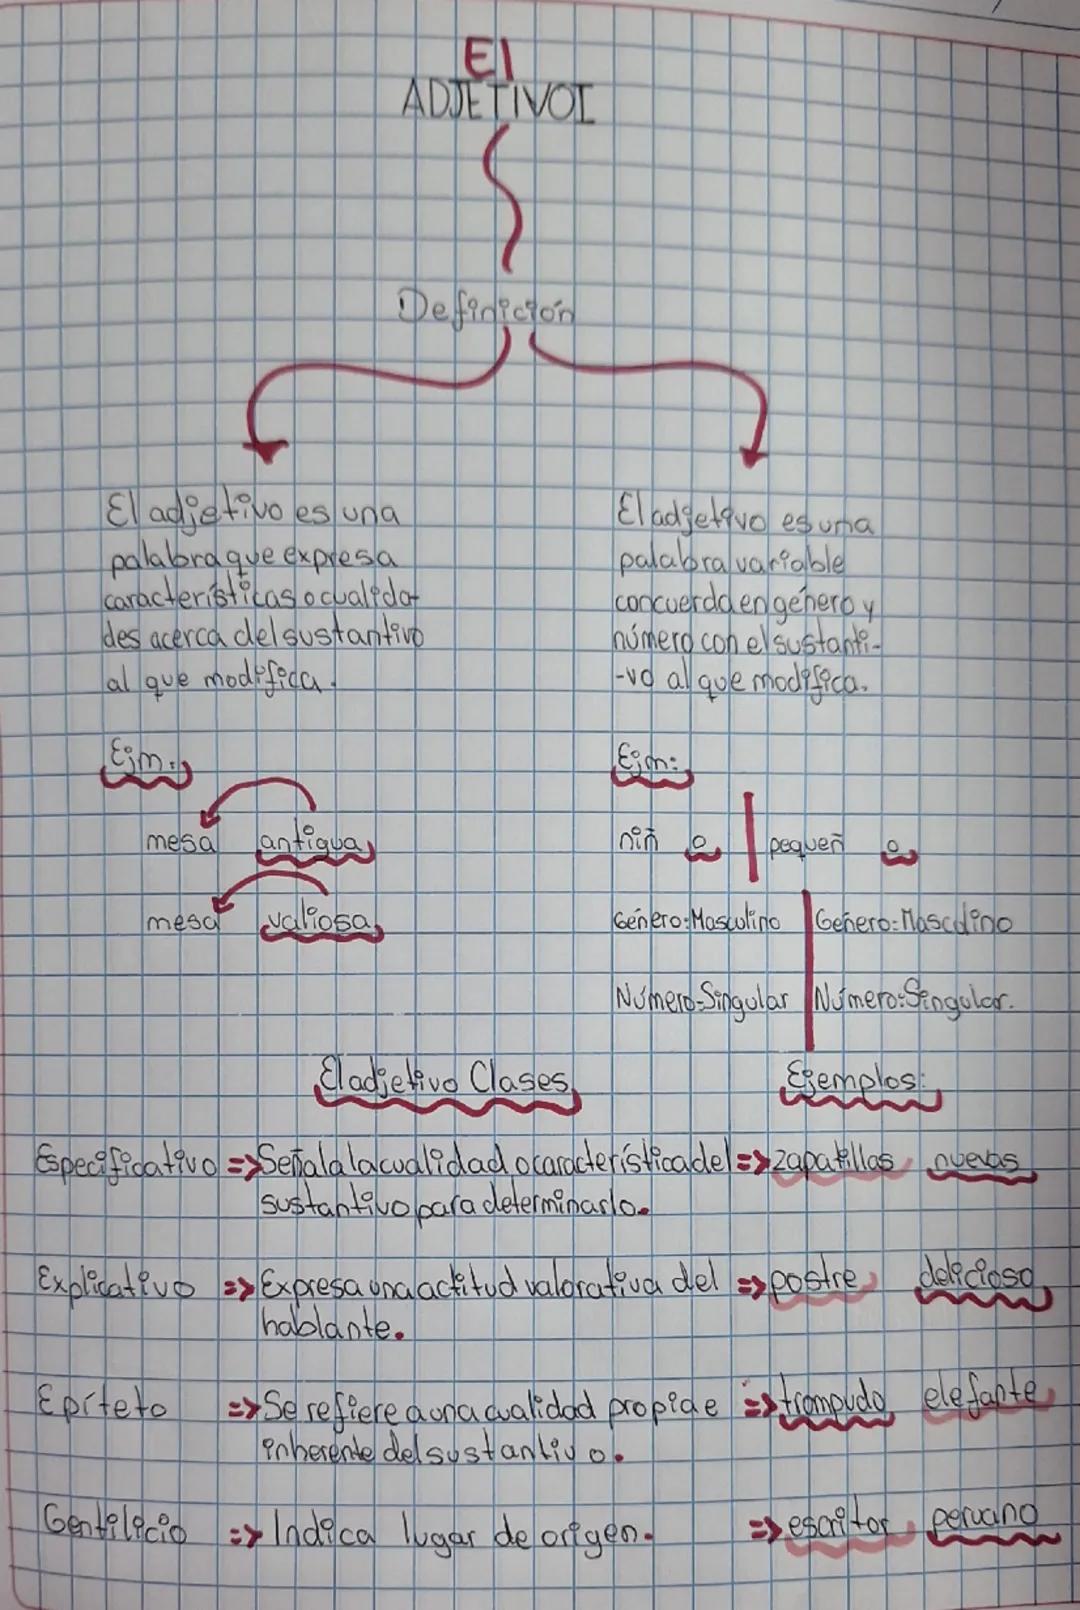 El
ADJETIVO I
Definición
El adjetivo es una
palabra que expresa
características o cualida-
des acerca del sustantivo
al que modifica.
Ejm.:
mesa antigua
mesa valiosa
El adjetivo es una
palabra variable
concuerda en género y
número con el sustanti-
-vo al que modifica.
Ejm:
niñ o pequeñ o
Género: Masculino Género: Masculino
Número: Singular Número: Singular.
El adjetivo Clases Ejemplos:
Especificativo => Señala la cualidad o característica del => zapatillas nuevas
sustantivo para determinarlo.
Explicativo => Expresa una actitud valorativa del => postre delicioso
hablante.
Epíteto => Se refiere a una cualidad propia e => trompudo elefante
inherente del sustantivo.
Gentilicio => Indica lugar de origen. => escritor peruano